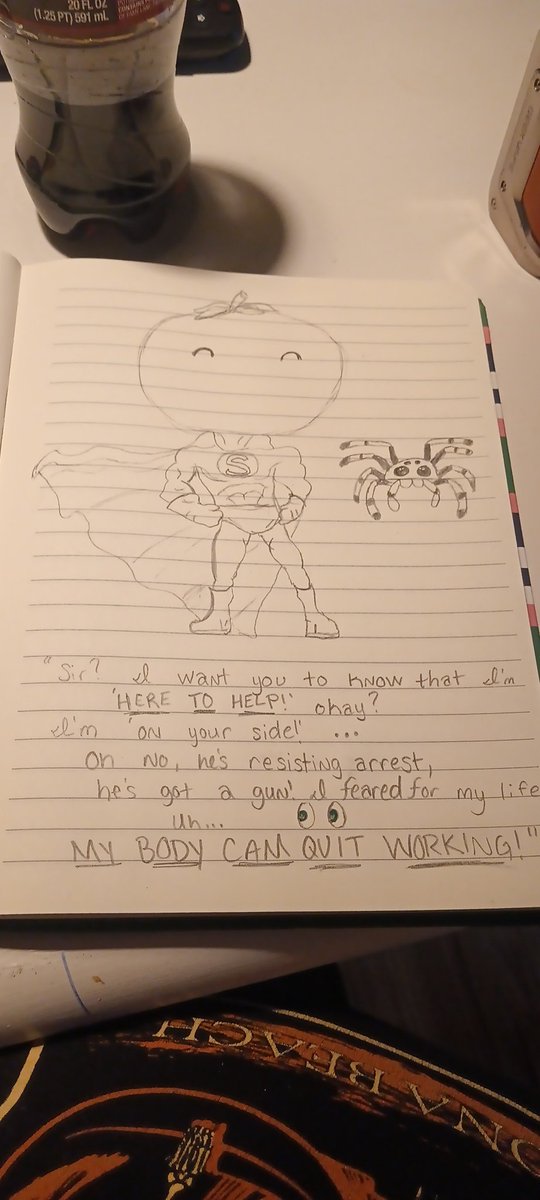 20 FL OZ
(1.25 PT) 591 mL
S
"Sir? I want you to know that I'm
'HERE TO HELP!' okay?
I'm 'on your side!' ...
Oh no, he's resisting arrest,
he's got a gun! I feared for my life
Uh...
MY BODY CAM QUIT WORKING!"
ONA BEACH